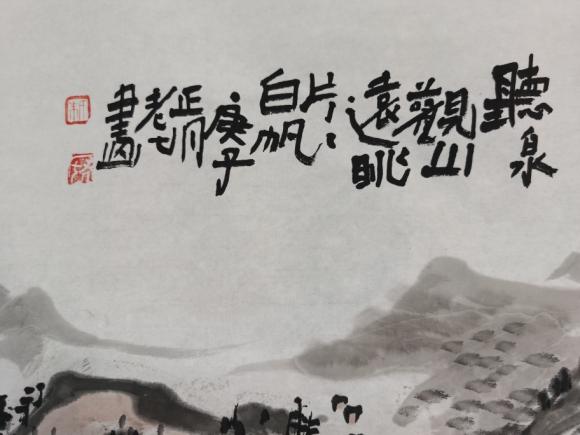 聽泉
觀山
遠眺
片片
白帆
庚子
正月
老七
畫